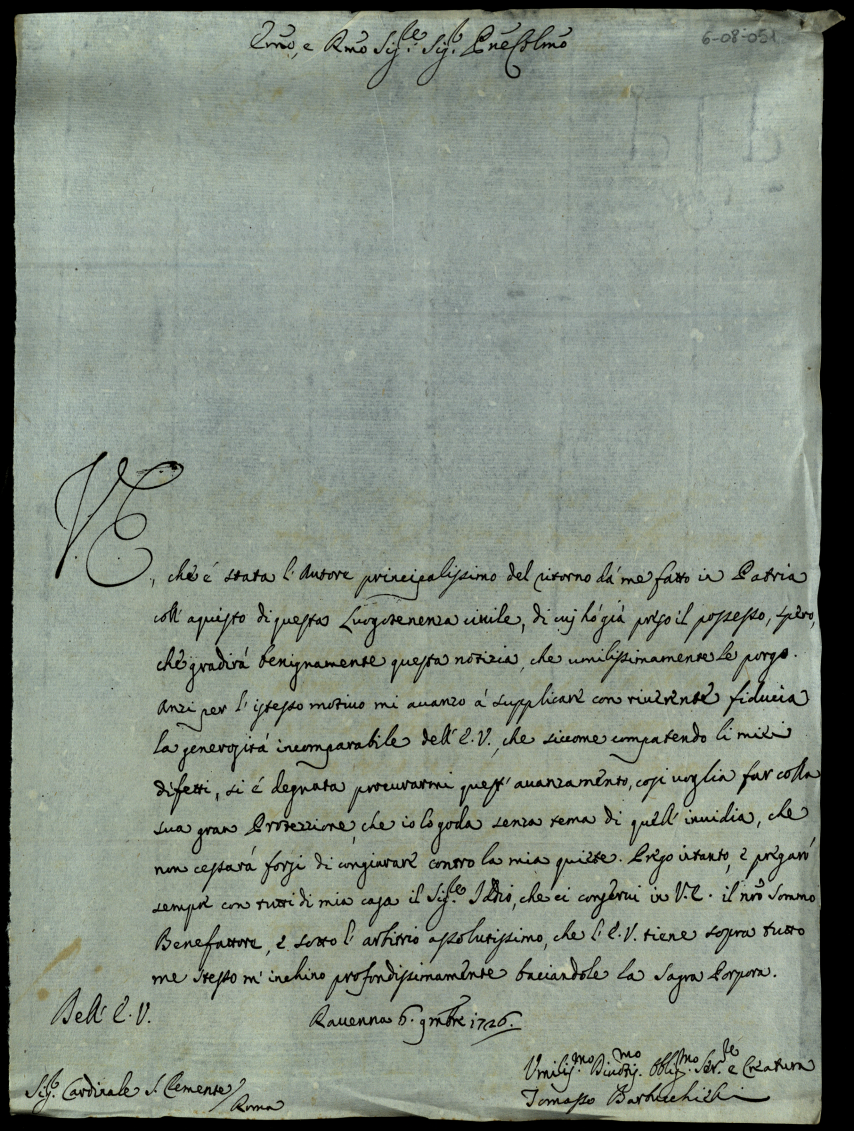 Emo, e Rmo Sigre. Sigr. Pne Colmo
6-08-051
V. E.
, che è stata l'Autore principalissimo del ritorno da me fatto in Patria
coll'aquisto di questa Luogotenenza civile, di cui hò già preso il possesso, spero,
che gradirà benignamente questa notizia, che umilissimamente le porgo.
Anzi per l'istesso motivo mi avanzo à supplicare con riverente fiducia
la generosità incomparabile dell'E.V., che siccome compatendo li miei
difetti, si é degnata procurarmi quest'avanzamento, così voglia far colla
sua gran Protezzione, che io lo goda senza tema di quell'invidia, che
non cessarà forsi di congiurare contro la mia quiete. Prego intanto, e pregarò
sempre con tutti di mia casa il Sigre. Iddio, che ci conservi in V.E. il nro Sommo
Benefattore, e sotto l'arbitrio assolutissimo, che l'E.V. tiene sopra tutto
me stesso m'inchino profondissimamente baciandole la Sagra Porpora.
Dell'E.V.
Ravenna 6. 9mbre 1726.
Umilismo Divotismo Obbligmo Serre e Creatura
Sigr. Cardinale S. Clemente / Roma
Tomasso